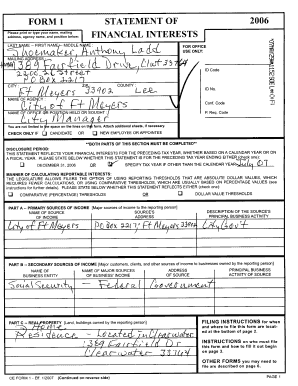 FORM 1 STATEMENT OF 2006
FINANCIAL INTERESTS
Please print or type your name, mailing
address, agency name, and position below:
LAST NAME -- FIRST NAME -- MIDDLE NAME:
Shoemaker, Anthony Ladd
MAILING ADDRESS:
1384 Fairfield Drive, Clwt 33764
2200 2nd Street
PO Box 2217
CITY: ZIP: COUNTY:
Ft Meyers 33902 Lee
NAME OF AGENCY:
City of Ft Meyers
NAME OF OFFICE OR POSITION HELD OR SOUGHT:
City Manager
You are not limited to the space on the lines on this form. Attach additional sheets, if necessary.
CHECK ONLY IF CANDIDATE OR NEW EMPLOYEE OR APPOINTEE
FOR OFFICE
USE ONLY:
ID Code
ID No.
Conf. Code
P. Req. Code
**BOTH PARTS OF THIS SECTION MUST BE COMPLETED**
DISCLOSURE PERIOD:
THIS STATEMENT REFLECTS YOUR FINANCIAL INTERESTS FOR THE PRECEDING TAX YEAR, WHETHER BASED ON A CALENDAR YEAR OR ON
A FISCAL YEAR. PLEASE STATE BELOW WHETHER THIS STATEMENT REFLECTS FOR THE PRECEDING TAX YEAR ENDING EITHER (check one):
DECEMBER 31, 2006 OR SPECIFY TAX YEAR IF OTHER THAN THE CALENDAR YEAR: July 07
MANNER OF CALCULATING REPORTABLE INTERESTS:
THE LEGISLATURE ALLOWS FILERS THE OPTION OF USING REPORTING THRESHOLDS THAT ARE ABSOLUTE DOLLAR VALUES, WHICH
REQUIRES FEWER CALCULATIONS, OR USING COMPARATIVE THRESHOLDS, WHICH ARE USUALLY BASED ON PERCENTAGE VALUES (see
instructions for further details). PLEASE STATE BELOW WHETHER THIS STATEMENT REFLECTS EITHER (check one):
COMPARATIVE (PERCENTAGE) THRESHOLDS OR DOLLAR VALUE THRESHOLDS
PART A -- PRIMARY SOURCES OF INCOME [Major sources of income to the reporting person]
NAME OF SOURCE SOURCE'S DESCRIPTION OF THE SOURCE'S
OF INCOME ADDRESS PRINCIPAL BUSINESS ACTIVITY
City of Ft Meyers PO Box 2217, Ft Meyers 33902 City Gov't
PART B -- SECONDARY SOURCES OF INCOME [Major customers, clients, and other sources of income to businesses owned by the reporting person]
NAME OF NAME OF MAJOR SOURCES ADDRESS PRINCIPAL BUSINESS
BUSINESS ENTITY OF BUSINESS' INCOME OF SOURCE ACTIVITY OF SOURCE
Social Security - Federal Government
PART C -- REAL PROPERTY [Land, buildings owned by the reporting person]
Home
Residence - Located in Clearwater
1384 Fairfield Dr
Clearwater 33764
FILING INSTRUCTIONS for when
and where to file this form are located
at the bottom of page 2.
INSTRUCTIONS on who must file
this form and how to fill it out begin
on page 3.
OTHER FORMS you may need to
file are described on page 6.
CE FORM 1 - Eff. 1/2007 (Continued on reverse side) PAGE 1